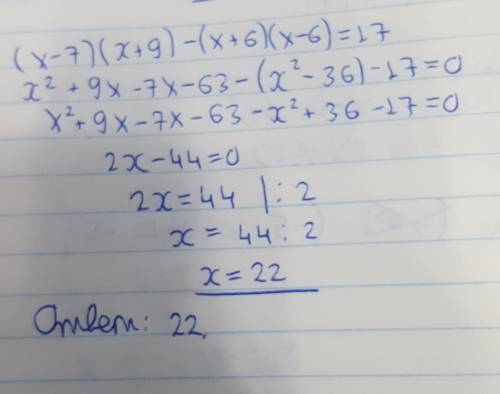 (x-7)(x+9)-(x+6)(x-6)=17
x²+9x-7x-63-(x²-36)-17=0
x²+9x-7x-63-x²+36-17=0
2x-44=0
2x=44 |:2
x=44:2
x=22
Ответ: 22.